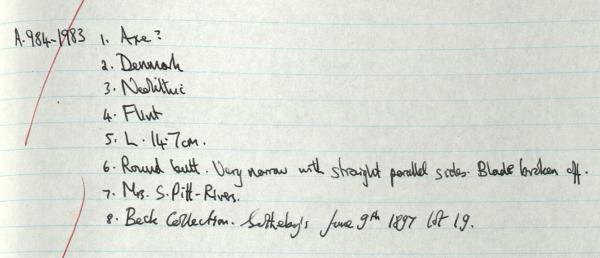 A.984-1983 1. Axe?
2. Denmark
3. Neolithic
4. Flint
5. L. 14.7cm.
6. Round butt. Very narrow with straight parallel sides. Blade broken off.
7. Mrs. S. Pitt-Rivers.
8. Beck Collection. Sotheby's June 9th 1897 lot 19.